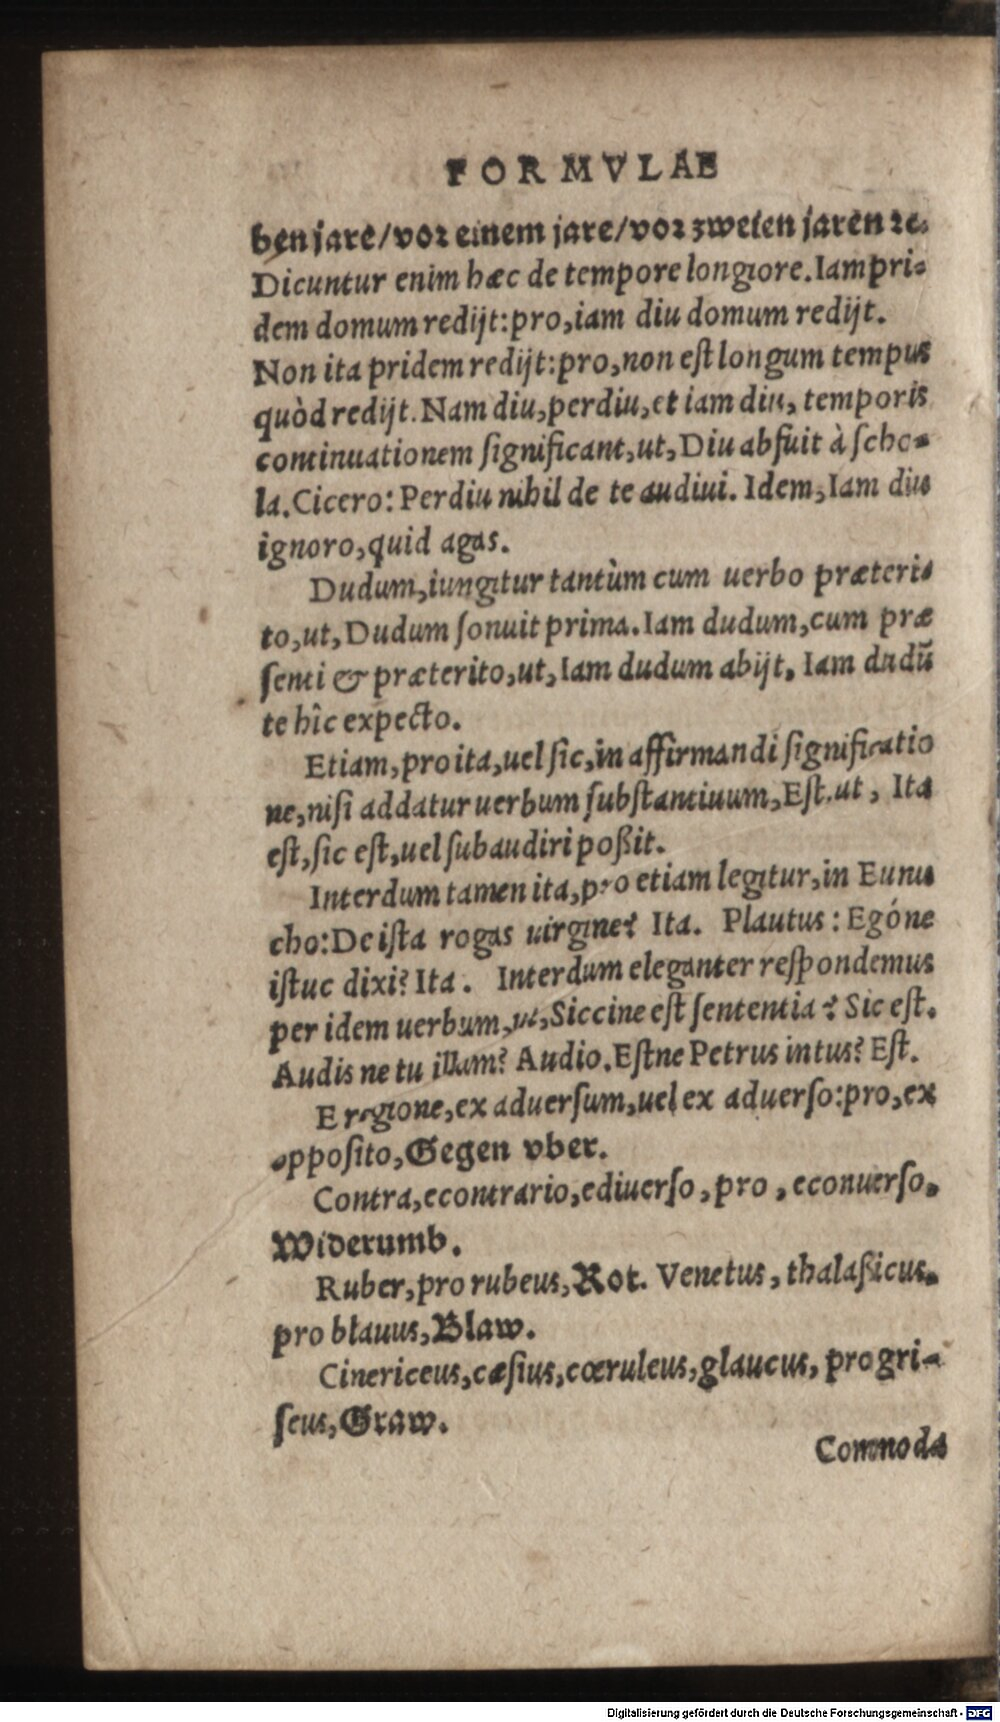 FORMVLAE
ben jare/vor einem jare/vor zweien jaren ꝛc.
Dicuntur enim hæc de tempore longiore. Iampri-
dem domum redijt: pro, iam diu domum redijt.
Non ita pridem redijt: pro, non est longum tempus
quòd redijt. Nam diu, perdiu, et iam diu, temporis
continuationem significant, ut, Diu abfuit à scho-
la. Cicero: Perdiu nihil de te audiui. Idem, Iam diu
ignoro, quid agas.
Dudum, iungitur tantùm cum uerbo præteri-
to, ut, Dudum sonuit prima. Iam dudum, cum præ
senti & præterito, ut, Iam dudum abijt. Iam dudū
te hîc expecto.
Etiam, pro ita, uel sic, in affirmandi significatio
ne, nisi addatur uerbum substantiuum, Est. ut, Ita
est, sic est, uel subaudiri poßit.
Interdum tamen ita, pro etiam legitur, in Eunu
cho: De ista rogas uirgine? Ita. Plautus: Egóne
istuc dixi? Ita. Interdum eleganter respondemus
per idem uerbum, ut, Siccine est sententia? Sic est.
Audis ne tu illam? Audio. Estne Petrus intus? Est.
E regione, ex aduersum, uel ex aduerso: pro, ex
opposito, Gegen vber.
Contra, econtrario, ediuerso, pro, econuerso,
Widerumb.
Ruber, pro rubeus, Rot. Venetus, thalaßicus,
pro blauus, Blaw.
Cinericeus, cæsius, cœruleus, glaucus, pro gri-
seus, Graw.
Commoda
Digitalisierung gefördert durch die Deutsche Forschungsgemeinschaft - DFG